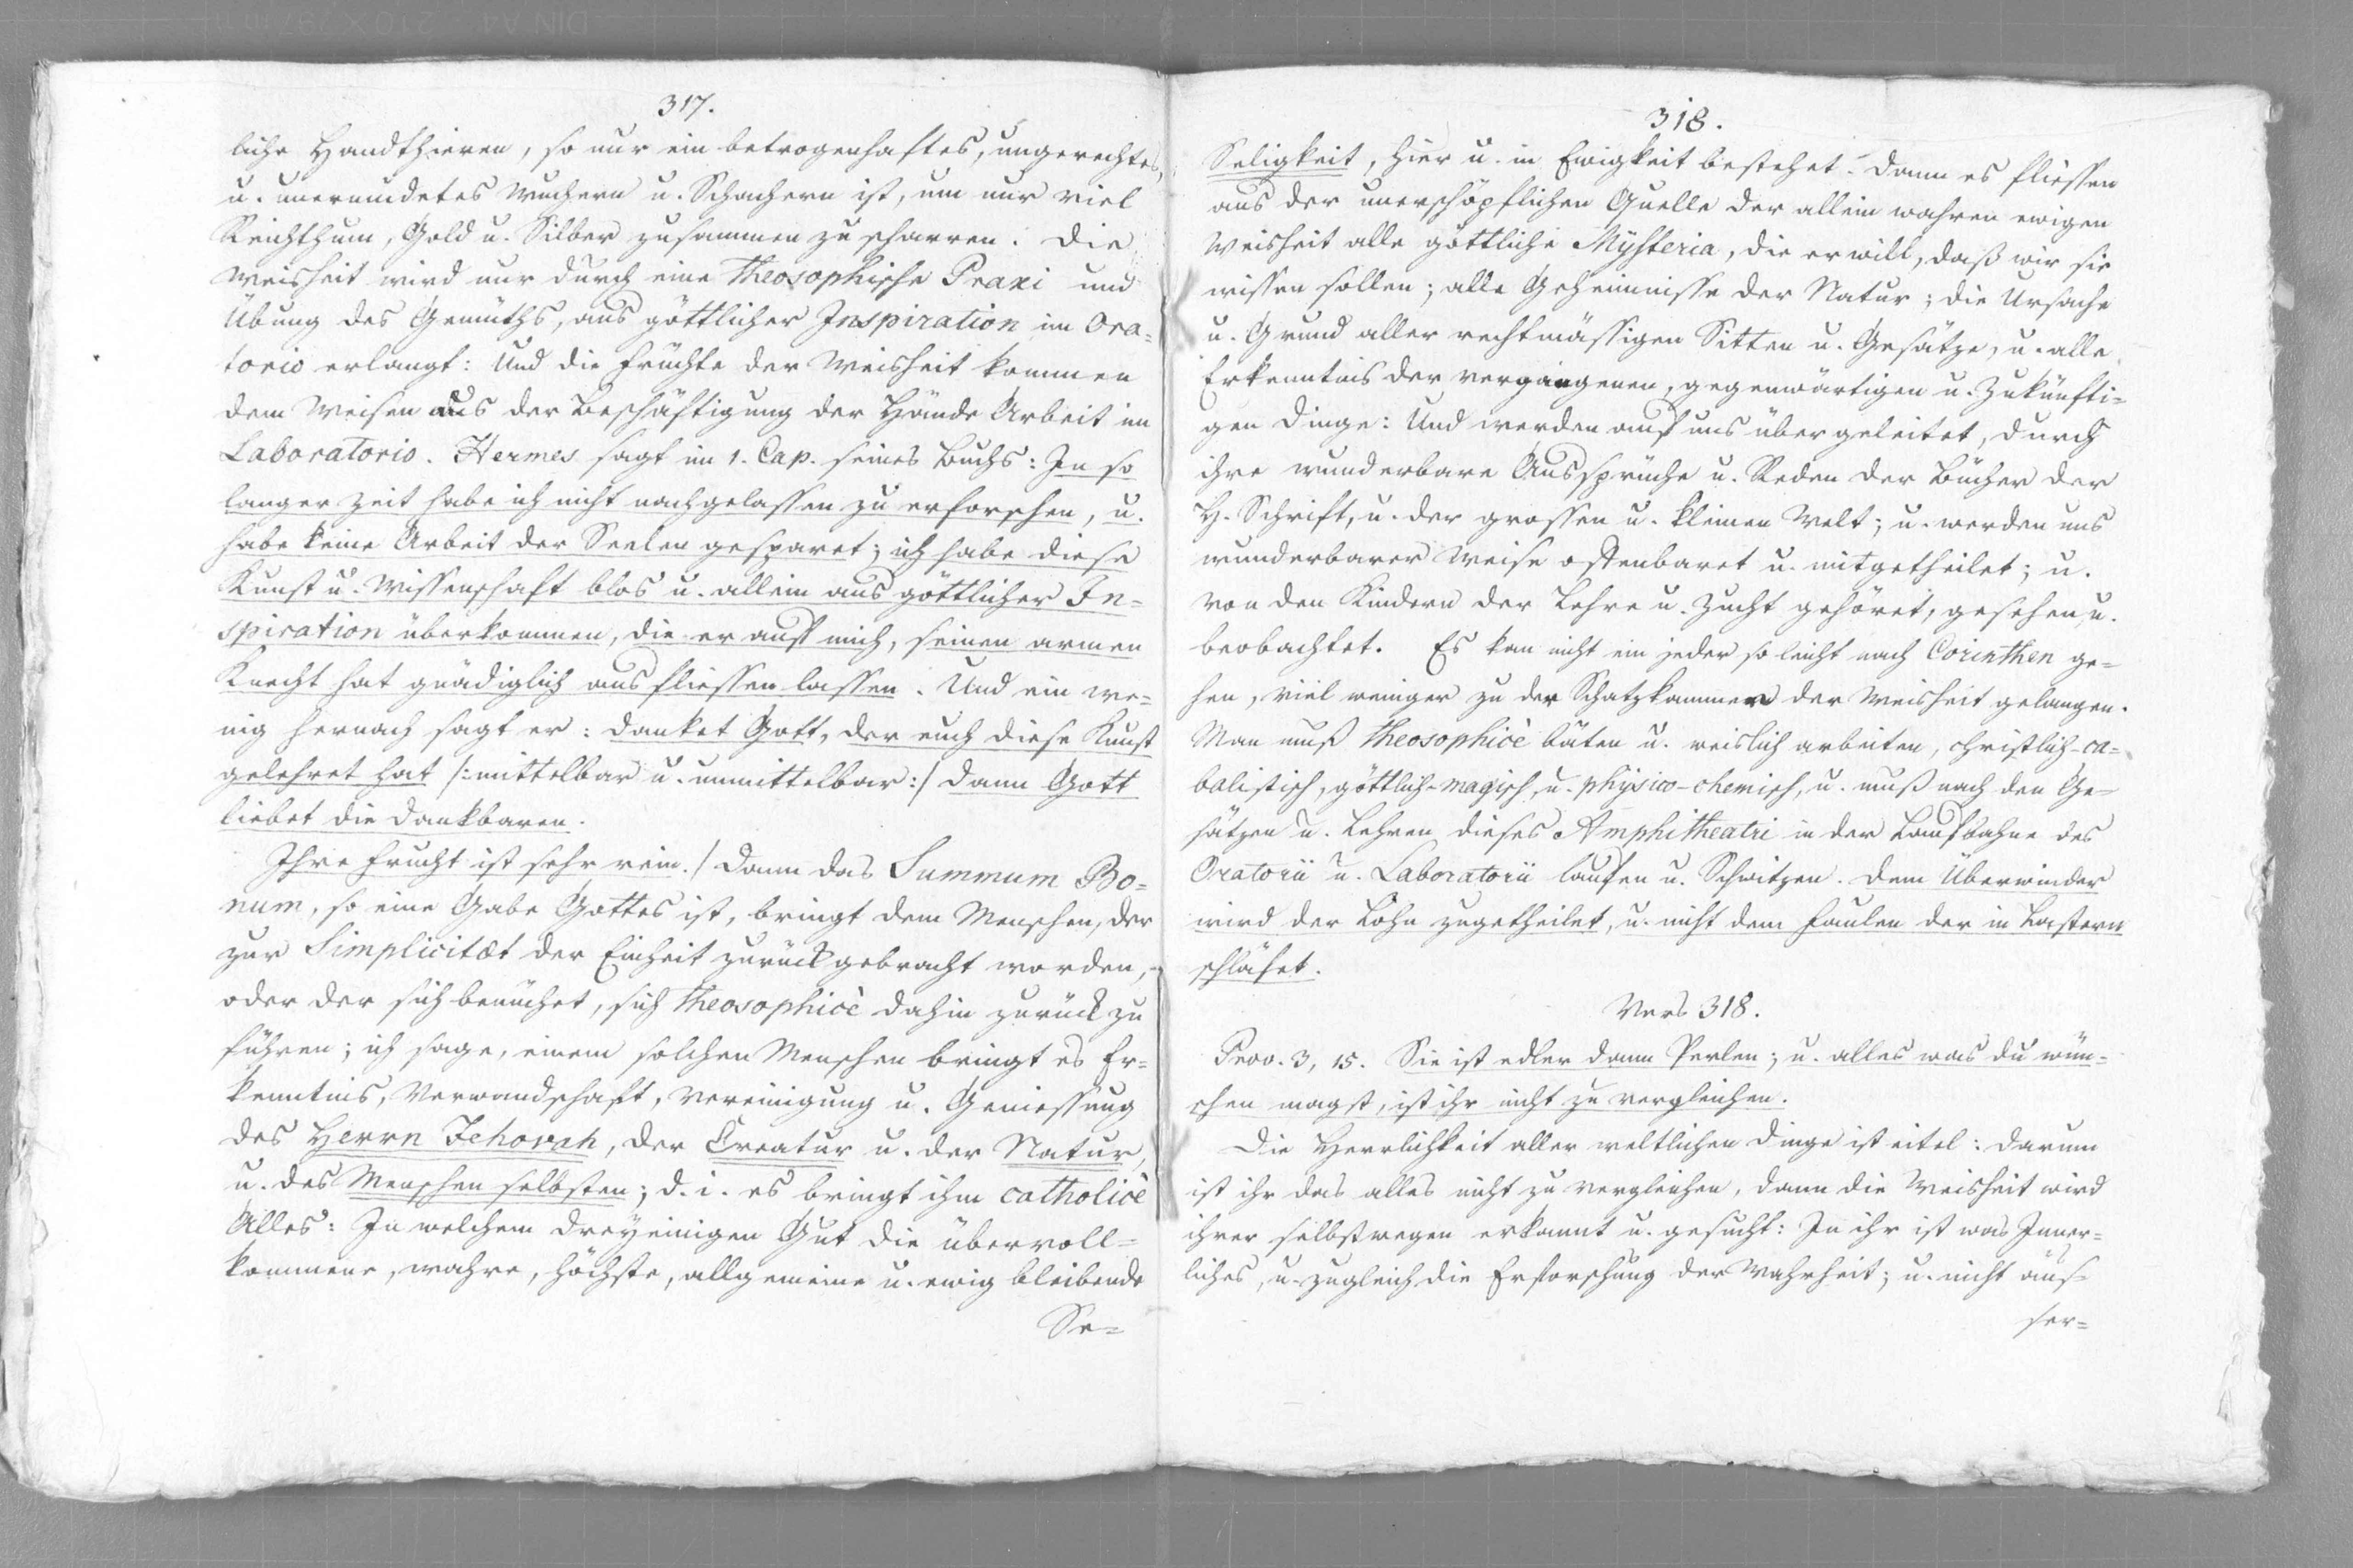 317.
liche Handthieren, so nur ein betrogenhaftes, ungerechtes,
u. unermüdetes Wuchern u. Schachern ist, um nur viel
Reichthum, Gold u. Silber zusammen zu scharren. Die
Weisheit wird nur durch eine Theosophische Praxi und
Übung des Gemüths, aus göttlicher Inspiration im Ora=
torio erlangt: Und die Früchte der Weisheit kommen
dem Weisen aus der Beschäftigung der Hände Arbeit im
Laboratorio. Hermes sagt im 1. Cap. seines Buchs: In so
langer Zeit habe ich nicht nachgelassen zu erforschen, u.
habe keine Arbeit der Seelen gesparet; ich habe diese
Kunst u. Wissenschaft blos u. allein aus göttlicher In=
spiration überkommen, die er auf mich, seinen armen
Knecht hat gnädiglich ausfliessen lassen. Und ein we=
nig hernach sagt er: danket Gott, der euch diese Kunst
gelehret hat /:mittelbar u. unmittelbar:/ dann Gott
liebet die Dankbaren.
Ihre Frucht ist sehr rein./ Dann das Summum Bo=
num, so eine Gabe Gottes ist, bringt dem Menschen, der
zur Simplicitæt der Einheit zurückgebracht worden,
oder der sich bemühet, sich Theosophicè dahin zurück zu
führen; ich sage, einem solchen Menschen bringt es Er=
kenntnis, Verwandschaft, Vereinigung u. Geniessung
des Herrn Jehovah, der Creatur u. der Natur,
u. des Menschen selbsten; d. i. es bringt ihm catholicè
Alles: In welchem dreyeinigen Gut die übervoll=
kommene, wahre, höchste, allgemeine u. ewig bleibende
Se=
318.
Seligkeit, hier u. in Ewigkeit bestehet. Dann es fliessen
aus der unerschöpflichen Quelle der allein wahren ewigen
Weisheit alle göttliche Mysteria, die er will, daß wir sie
wissen sollen; alle Geheimnisse der Natur; die Ursache
u. Grund aller rechtmässigen Sitten u. Gesätze, u. alle
Erkenntnis der vergangenen, gegenwärtigen u. zukünfti=
gen Dinge: Und werden auf uns über geleitet, durch
ihre wunderbare Aussprüche u. Reden der Bücher der
H. Schrift, u. der grossen u. kleinen Welt; u. werden uns
wunderbarer Weise offenbaret u. mitgetheilet; u.
von den Kindern der Lehre u. Zucht gehöret, gesehen, u.
beobachtet. Es kan nicht ein jeder so leicht nach Corinthen ge=
hen, viel weniger zu der Schatzkammer der Weisheit gelangen.
Man muß Theosophicè bäten u. weislich arbeiten, christlich-ca=
balistisch, göttlich-magisch, u. physico-chemisch, u. muß nach den Ge=
sätzen u. Lehren dieses Amphitheatri in der Laufbahne des
Oratorii u. Laboratorii laufen u. Schwitzen. Dem Überwinder
wird der Lohn zugetheilet, u. nicht dem Faulen der in Lastern
schläfet.
Vers 318.
Prov. 3, 15. Sie ist edler dann Perlen; u. alles was du wün=
schen magst, ist ihr nicht zu vergleichen.
Die Herrlichkeit aller weltlichen Dinge ist eitel: darum
ist ihr das alles nicht zu vergleichen, dann die Weisheit wird
ihrer selbstwegen erkannt u. gesucht: In ihr ist was Inner=
liches, u. zugleich die Erforschung der Wahrheit; u. nicht äus=
ser=